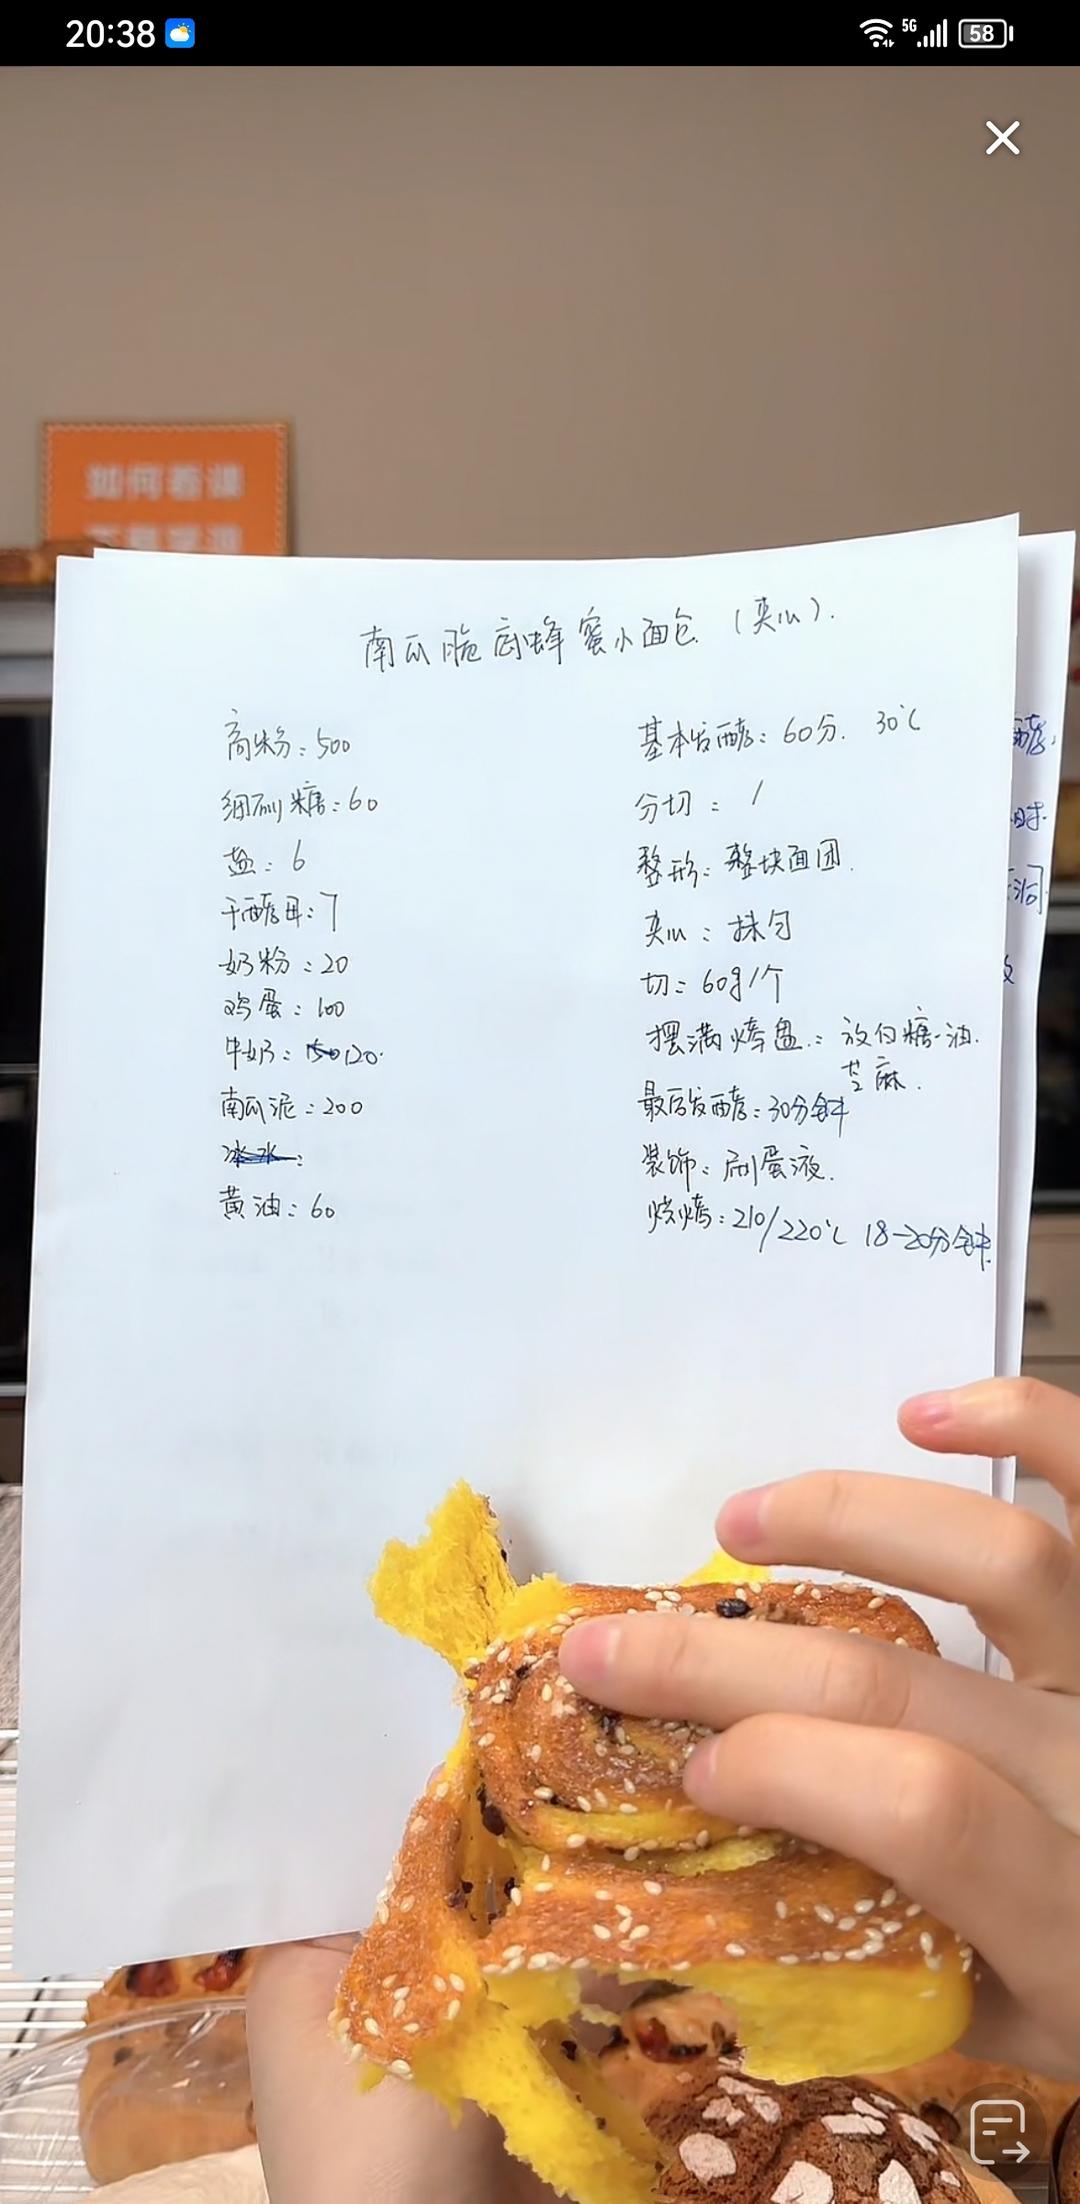 20:38
5G
58
如何看课
南瓜脆底蜂蜜小面包 (夹心).
高粉:500
细砂糖:60
盐:6
干酵母:7
奶粉:20
鸡蛋:100
牛奶:120.
南瓜泥:200
冰水:
黄油:60
基本发酵:60分. 30℃
分切:/
整形:整块面团.
夹心:抹匀
切:60g/个
摆满烤盘:放白糖、油.
芝麻.
最后发酵:30分钟
装饰:刷蛋液.
烧烤:210/220℃ 18-20分钟.